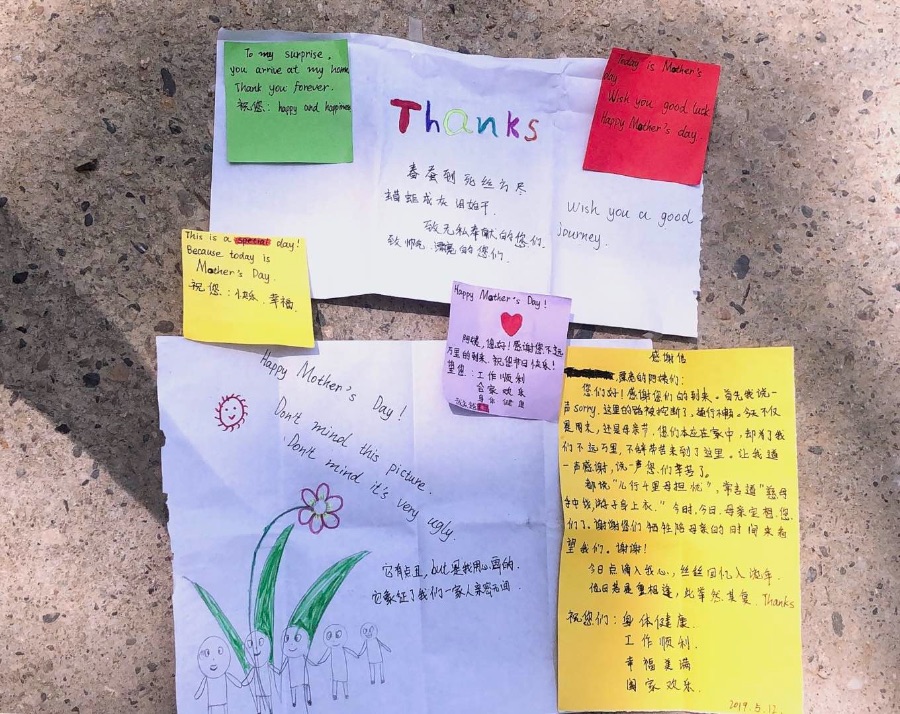 To my surprise,
you arrive at my home
Thank you forever.
祝您: happy and happiness
Thanks
春蚕到死丝方尽
蜡炬成灰泪始干.
致无私奉献的您们.
致 帅气、漂亮的您们.
Today is Mother's
day
Wish you good luck
Happy Mother's day
Wish you a good
Journey.
This is a special day!
Because today is
Mother's Day.
祝您:快乐、幸福.
Happy Mother's Day!
阿姨,您好!感谢您不远
万里的到来.祝您节日快乐!
望您:工作顺利
合家欢乐
身体健康
Happy Mother's Day!
Don't mind this picture.
Don't mind it's very ugly.
它有点丑,but是我用心画的.
它象征了我们一家人亲密无间.
感谢信
的阿姨们:
您们好!感谢您们的到来。首先我说一
声sorry,这里的路被挖断了,通行不顺。今天不仅
是周末,还是母亲节.您们本应在家中,却为了我
们不远万里,不辞带苦来到了这里。让我道
一声感谢,说一声您们辛苦了。
都说"儿行千里母担忧",常言道"慈母
手中线,游子身上衣."今时,今日,母亲定想您
们了。谢谢您们牺牲陪母亲的时间来看
望我们。谢谢!
今日点滴入我心,丝丝回忆入流年.
他日若是重相逢,此 其复.Thanks
祝您们:身体健康
工作顺利.
幸福美满
阖家欢乐.
2019.5.12.